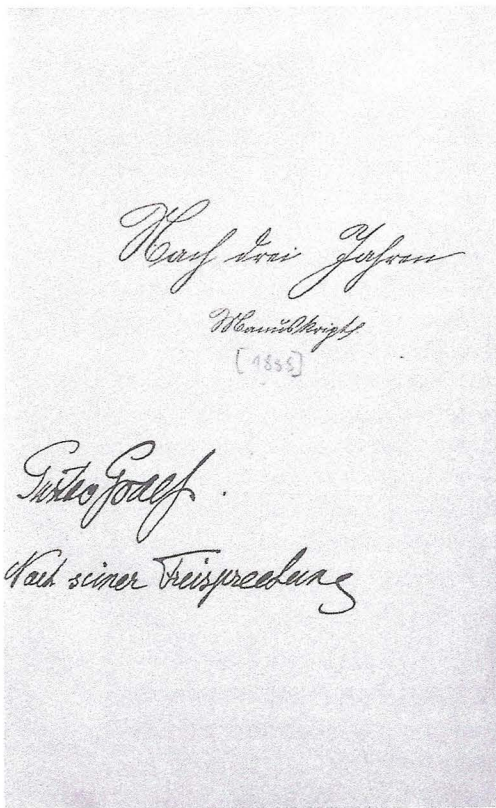 Nach drei Jahren
Manuskript
[1885]
Gustav Graef.
Nach seiner Freisprechung